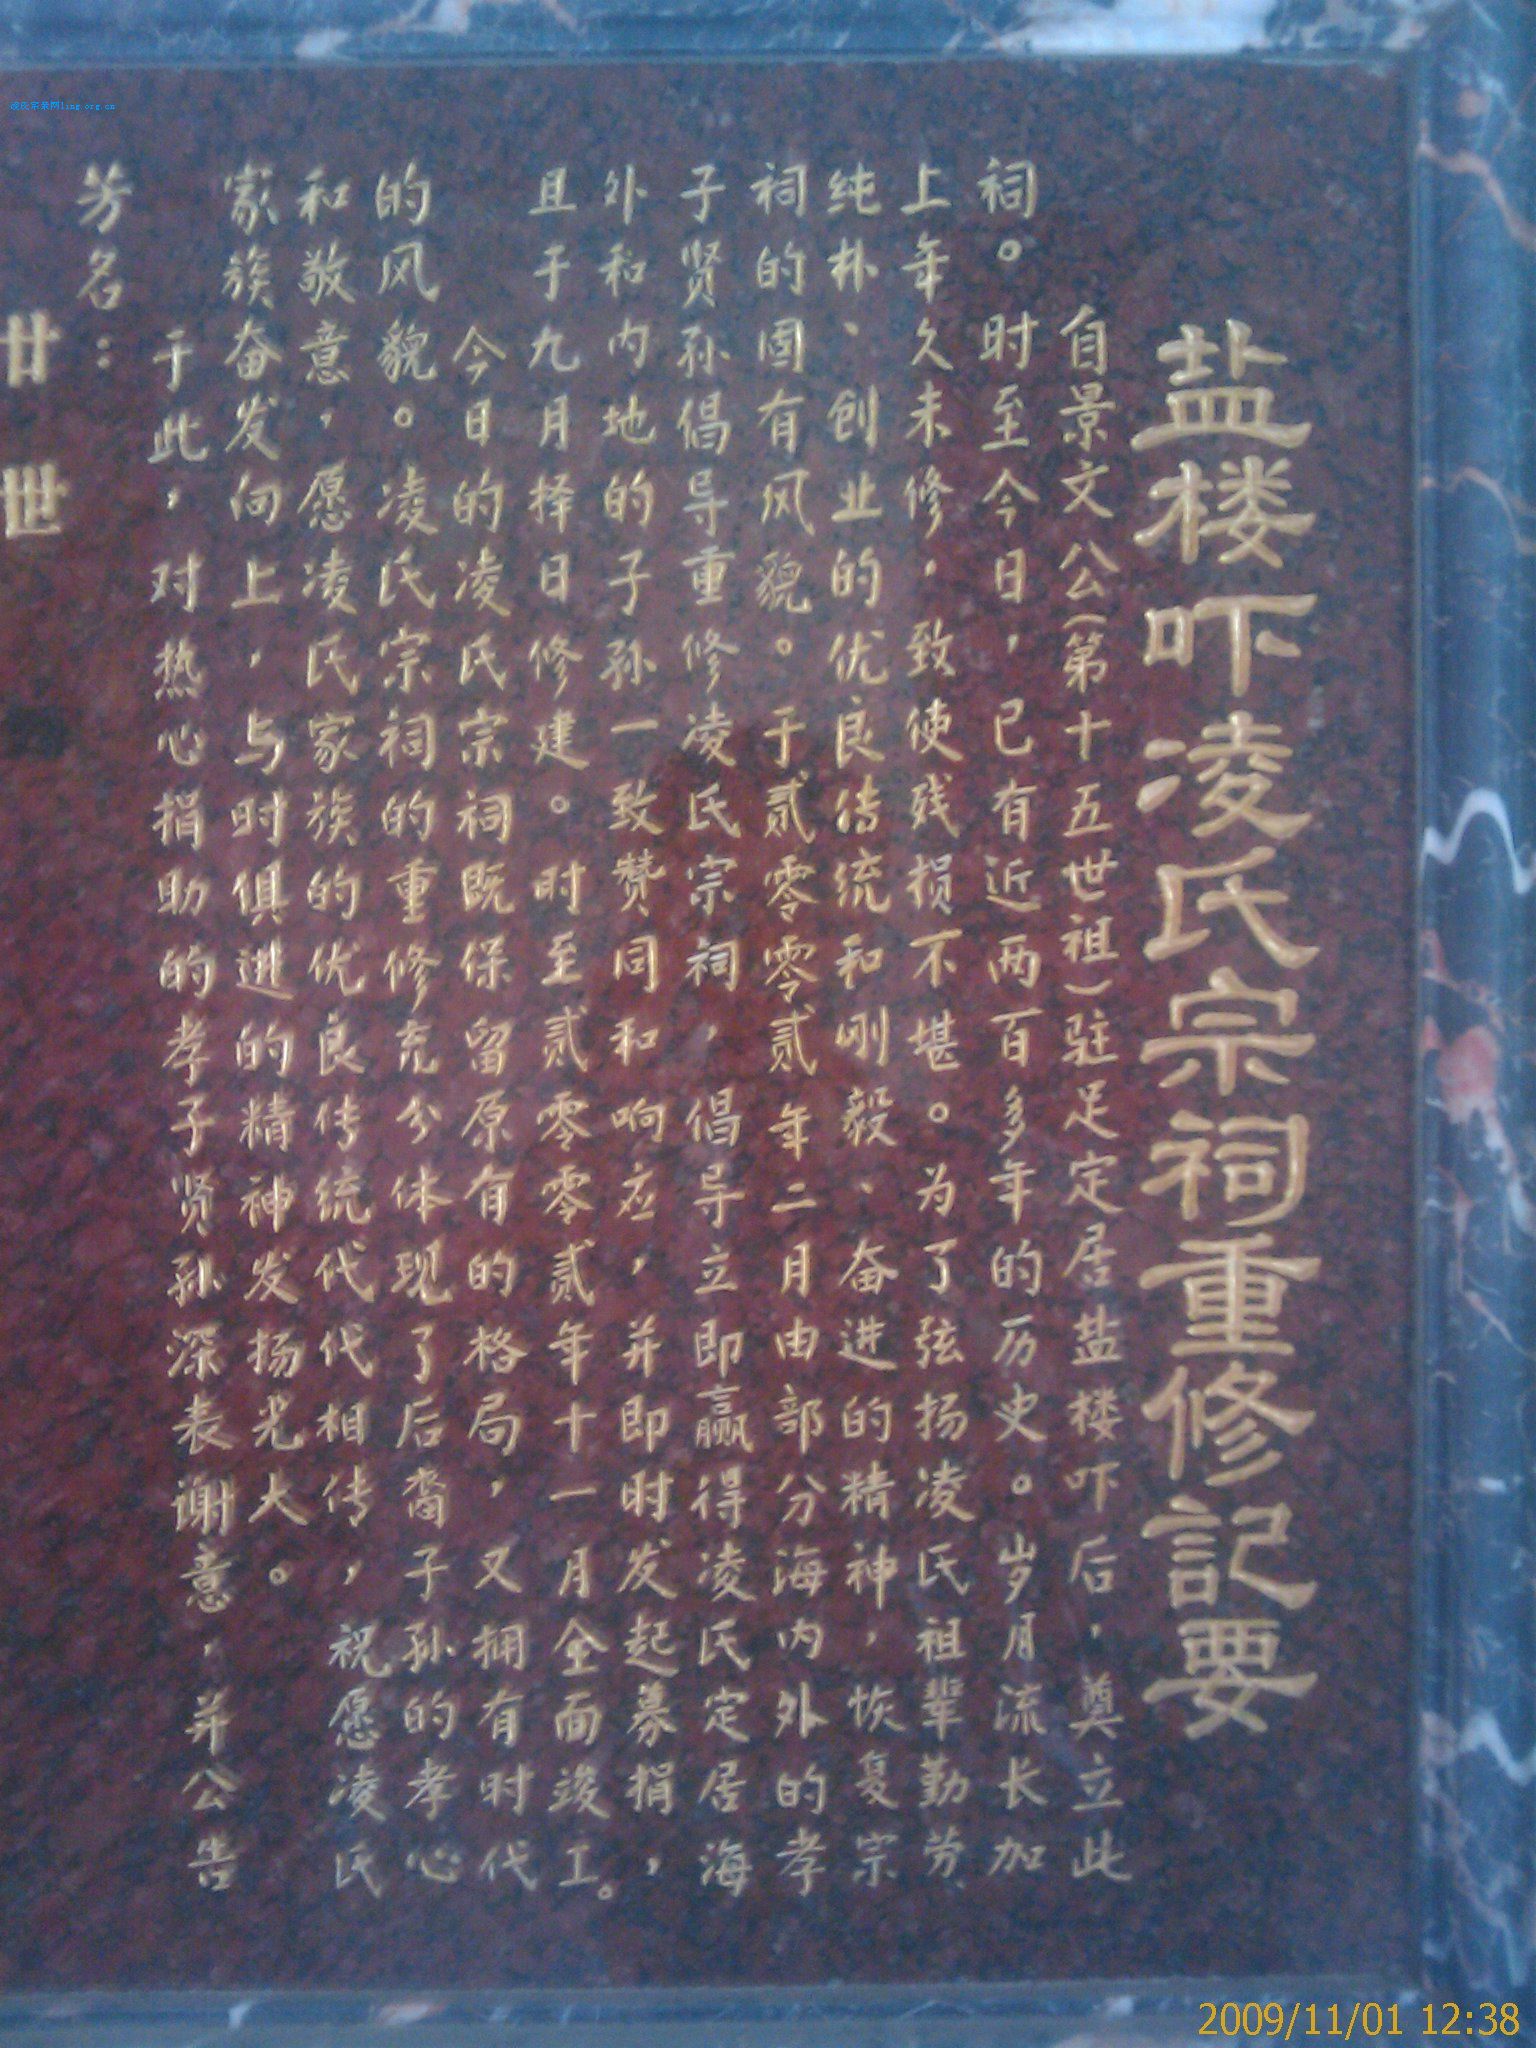 盐楼吓凌氏宗祠重修記要
自景文公(第十五世祖)驻足定居盐楼吓后，奠立此
祠。时至今日，已有近两百多年的历史。岁月流长加
上年久未修，致使残损不堪。为了弦扬凌氏祖辈勤劳、
纯朴、创业的优良传统和刚毅、奋进的精神，恢复宗
祠的固有风貌。于贰零零贰年二月由部分海内外的孝
子贤孙倡导重修凌氏宗祠，倡导立即赢得凌氏定居海
外和内地的子孙一致赞同和响应，并即时发起募捐，
且于九月择日修建。时至贰零零贰年十一月全面竣工。
今日的凌氏宗祠既保留原有的格局，又拥有时代
的风貌。凌氏宗祠的重修充分体现了后裔子孙的孝心
和敬意，愿凌氏家族的优良传统代代相传，祝愿凌氏
家族奋发向上，与时俱进的精神发扬光大。
于此，对热心捐助的孝子贤孙深表谢意，并公告
芳名：
廿世
凌氏宗亲网ling.org.cn
2009/11/01 12:38